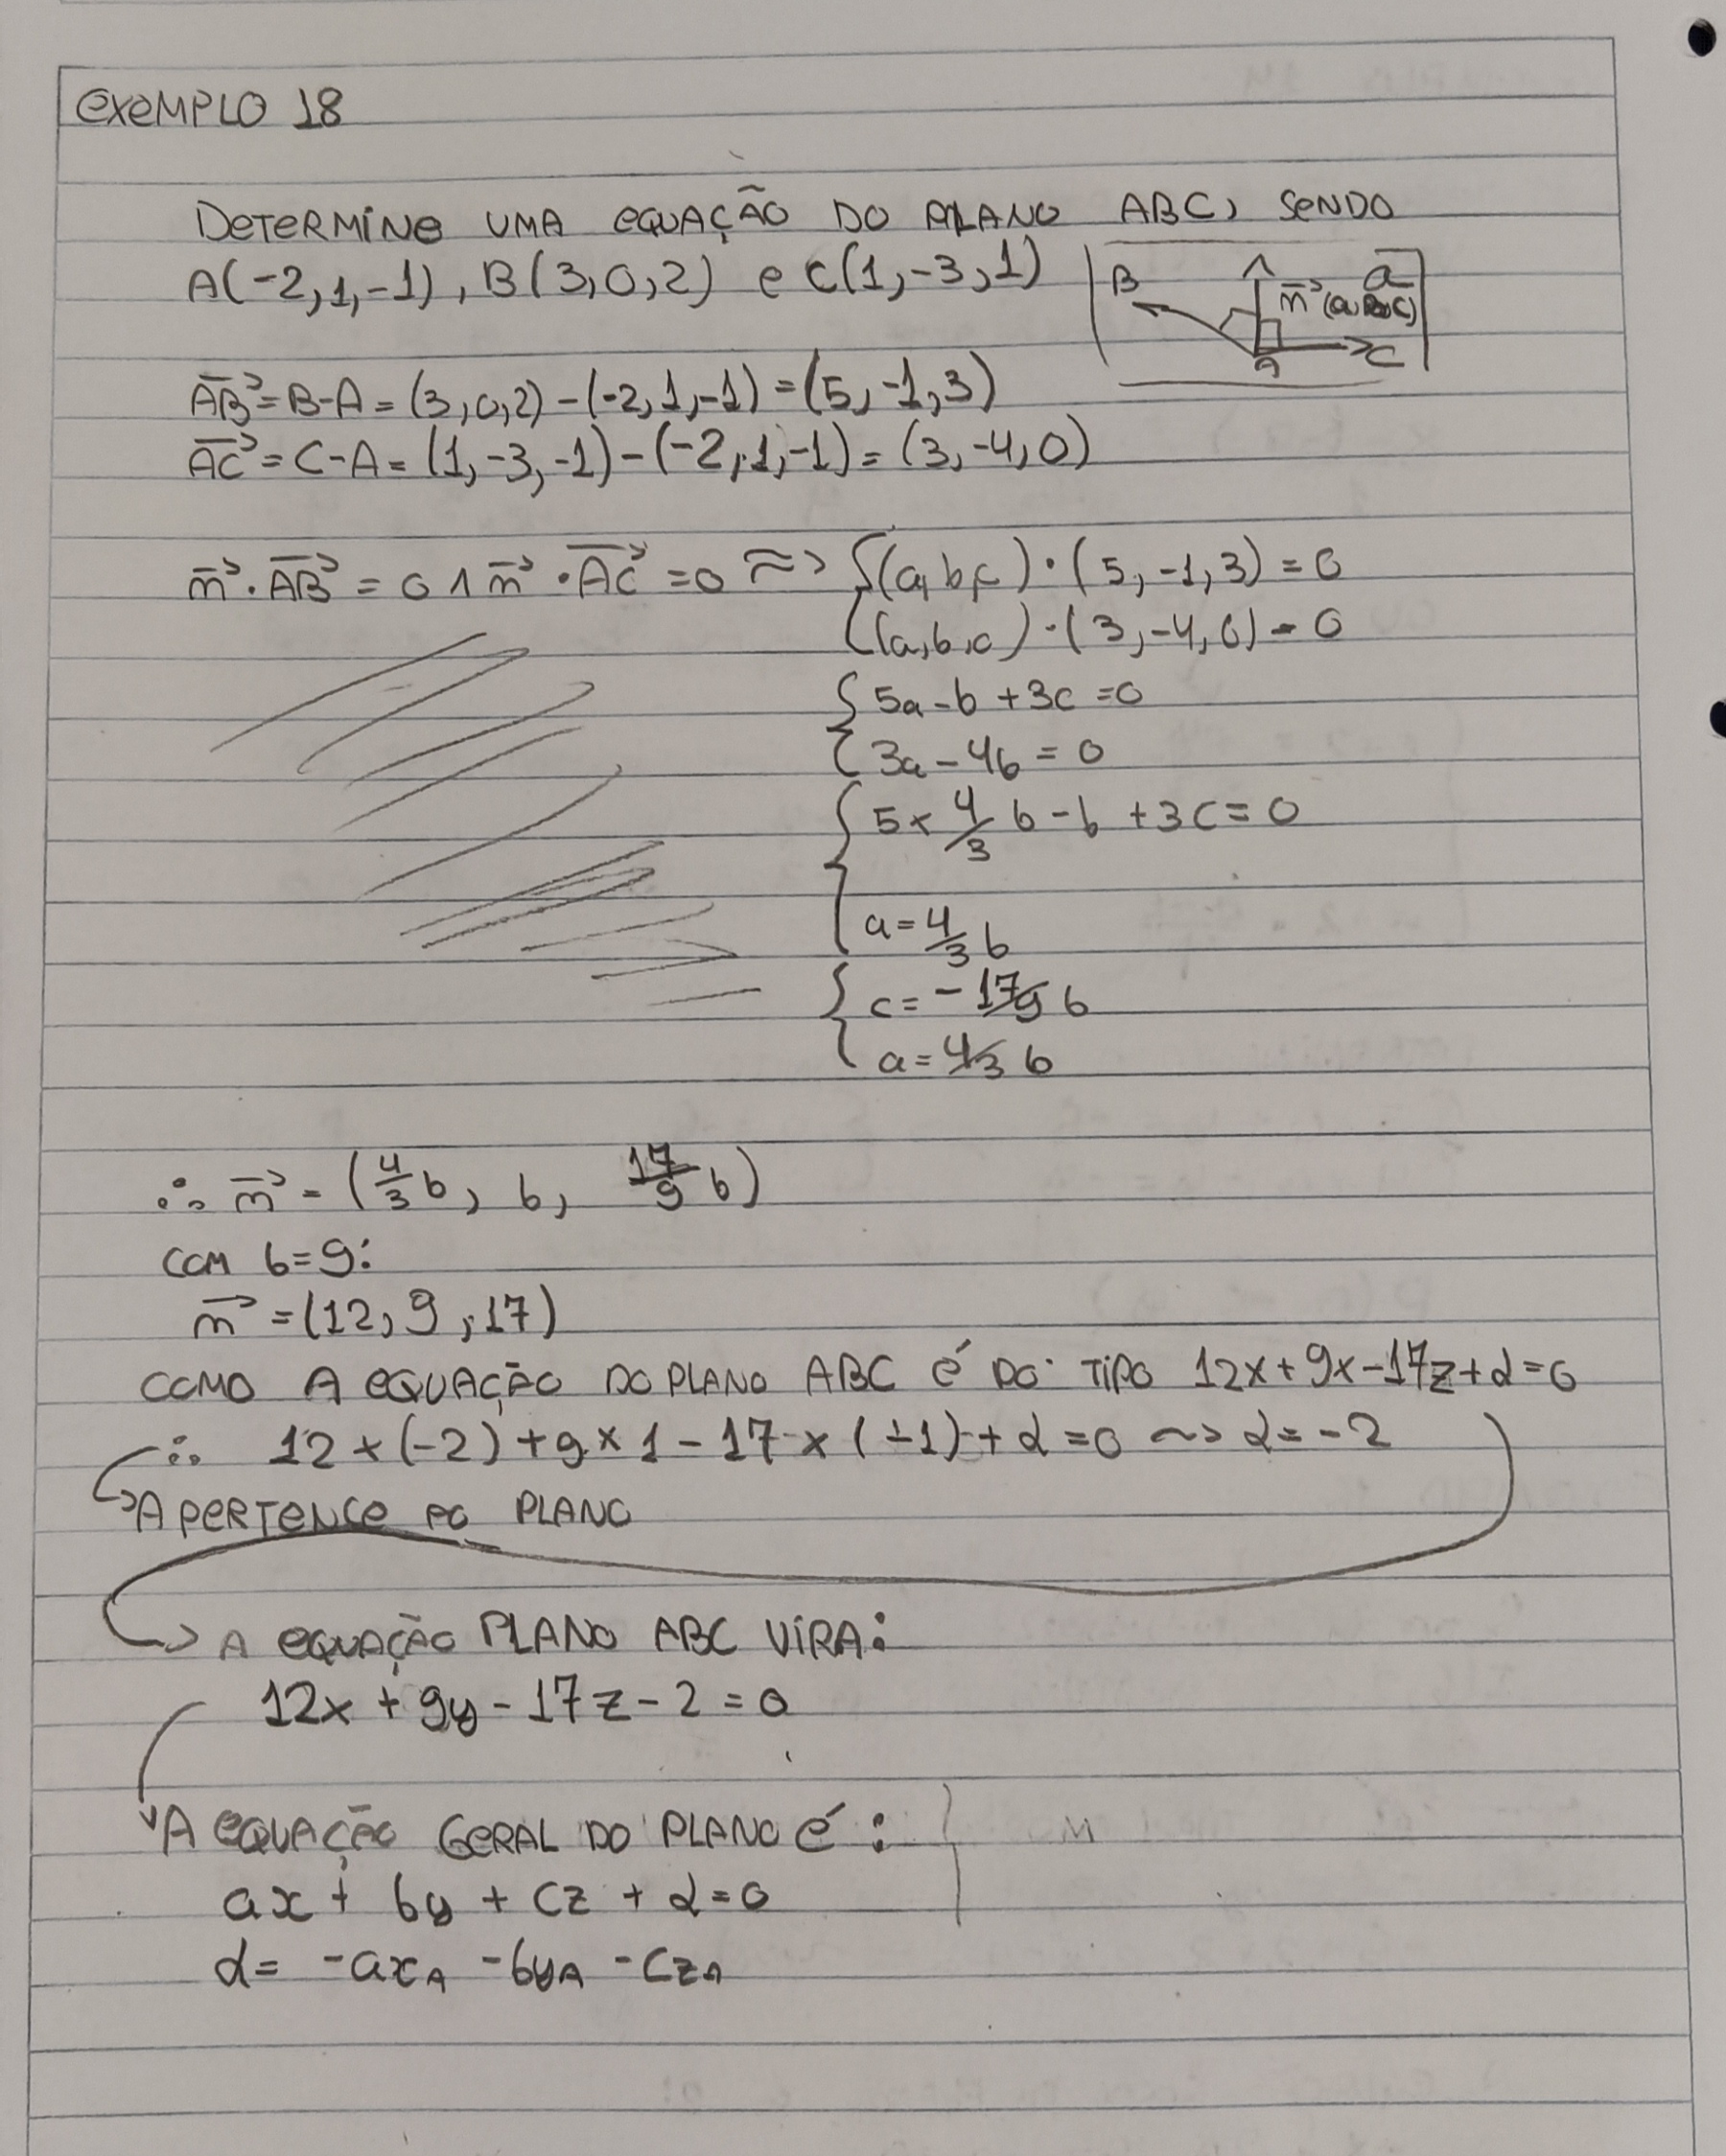 EXEMPLO 18
DETERMINE UMA EQUAÇÃO DO PLANO ABC, SENDO
A(-2,1,-1), B(3,0,2) e C(1,-3,1)
B n⃗ (a,b,c) α
A C
AB⃗ = B-A = (3,0,2) - (-2,1,-1) = (5,-1,3)
AC⃗ = C-A = (1,-3,-1) - (-2,1,-1) = (3,-4,0)
n⃗ · AB⃗ = 0 ∧ n⃗ · AC⃗ = 0 ~> { (a,b,c) · (5,-1,3) = 0
(a,b,c) · (3,-4,0) = 0
{ 5a - b + 3c = 0
3a - 4b = 0
{ 5 × 4/3 b - b + 3c = 0
a = 4/3 b
{ c = -17/9 b
a = 4/3 b
∴ n⃗ = (4/3 b, b, 17/9 b)
COM b=9:
n⃗ = (12, 9, 17)
COMO A EQUAÇÃO DO PLANO ABC É DO TIPO 12x+9x-17z+d=0
∴ 12 × (-2) + 9 × 1 - 17 × (-1) + d = 0 ~> d = -2
A PERTENCE AO PLANO
A EQUAÇÃO PLANO ABC VIRA:
12x + 9y - 17z - 2 = 0
A EQUAÇÃO GERAL DO PLANO É:
ax + by + cz + d = 0
d = -axA - byA - czA